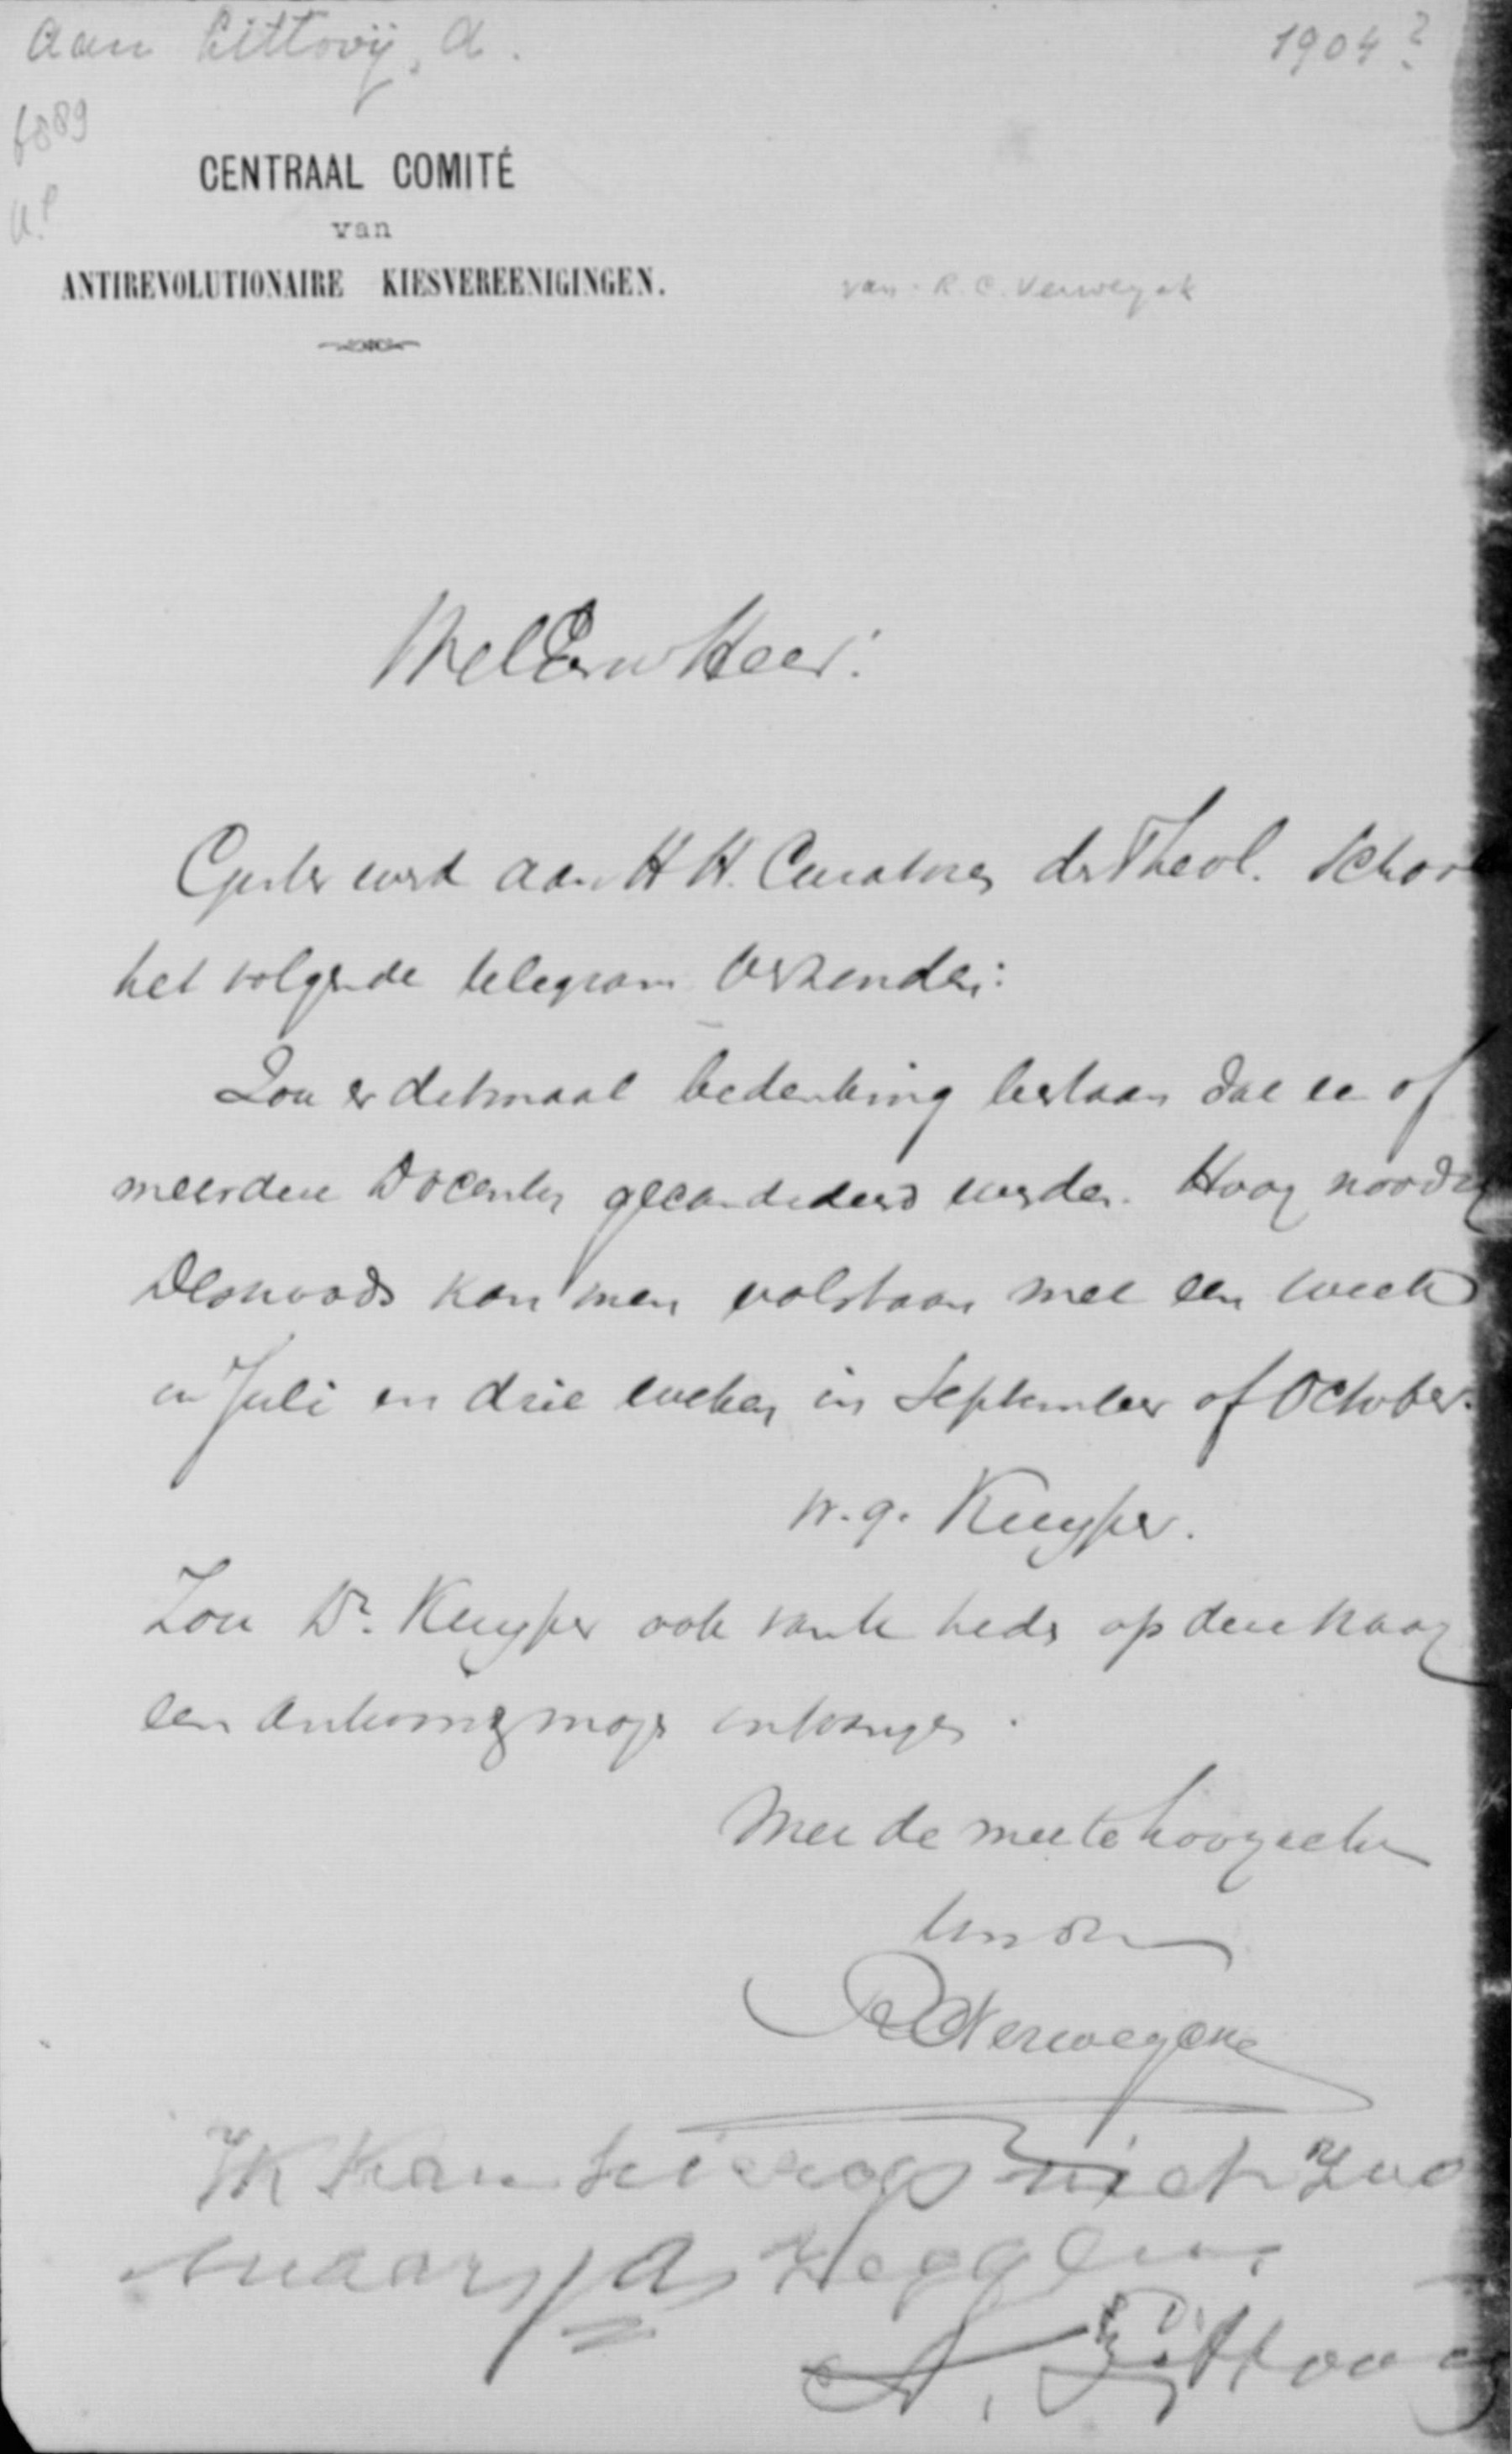 aan Littooij, A.
1904?
6889
CENTRAAL COMITÉ
van
ANTIREVOLUTIONAIRE KIESVEREENIGINGEN.
van R. C. Verweyck
WelEerw Heer!
Gister werd aan H H. Curatoren der Theol. School
het volgende telegram verzonden:
Zou er ditmaal bedenking bestaan dat een of
meerdere Docenten gecandideerd worden. Hoog noodig
Desnoods kan men volstaan met een week
in Juli en drie weken in September of October.
w.g. Kuyper.
Zou Dr. Kuyper ook van U heden op deze vraag
een antwoord mogen ontvangen.
Met de meeste hoogachting
Uw dr
RCVerweyck
Ik kan hierop niet zoo
maar ja zeggen.
A. Littooij